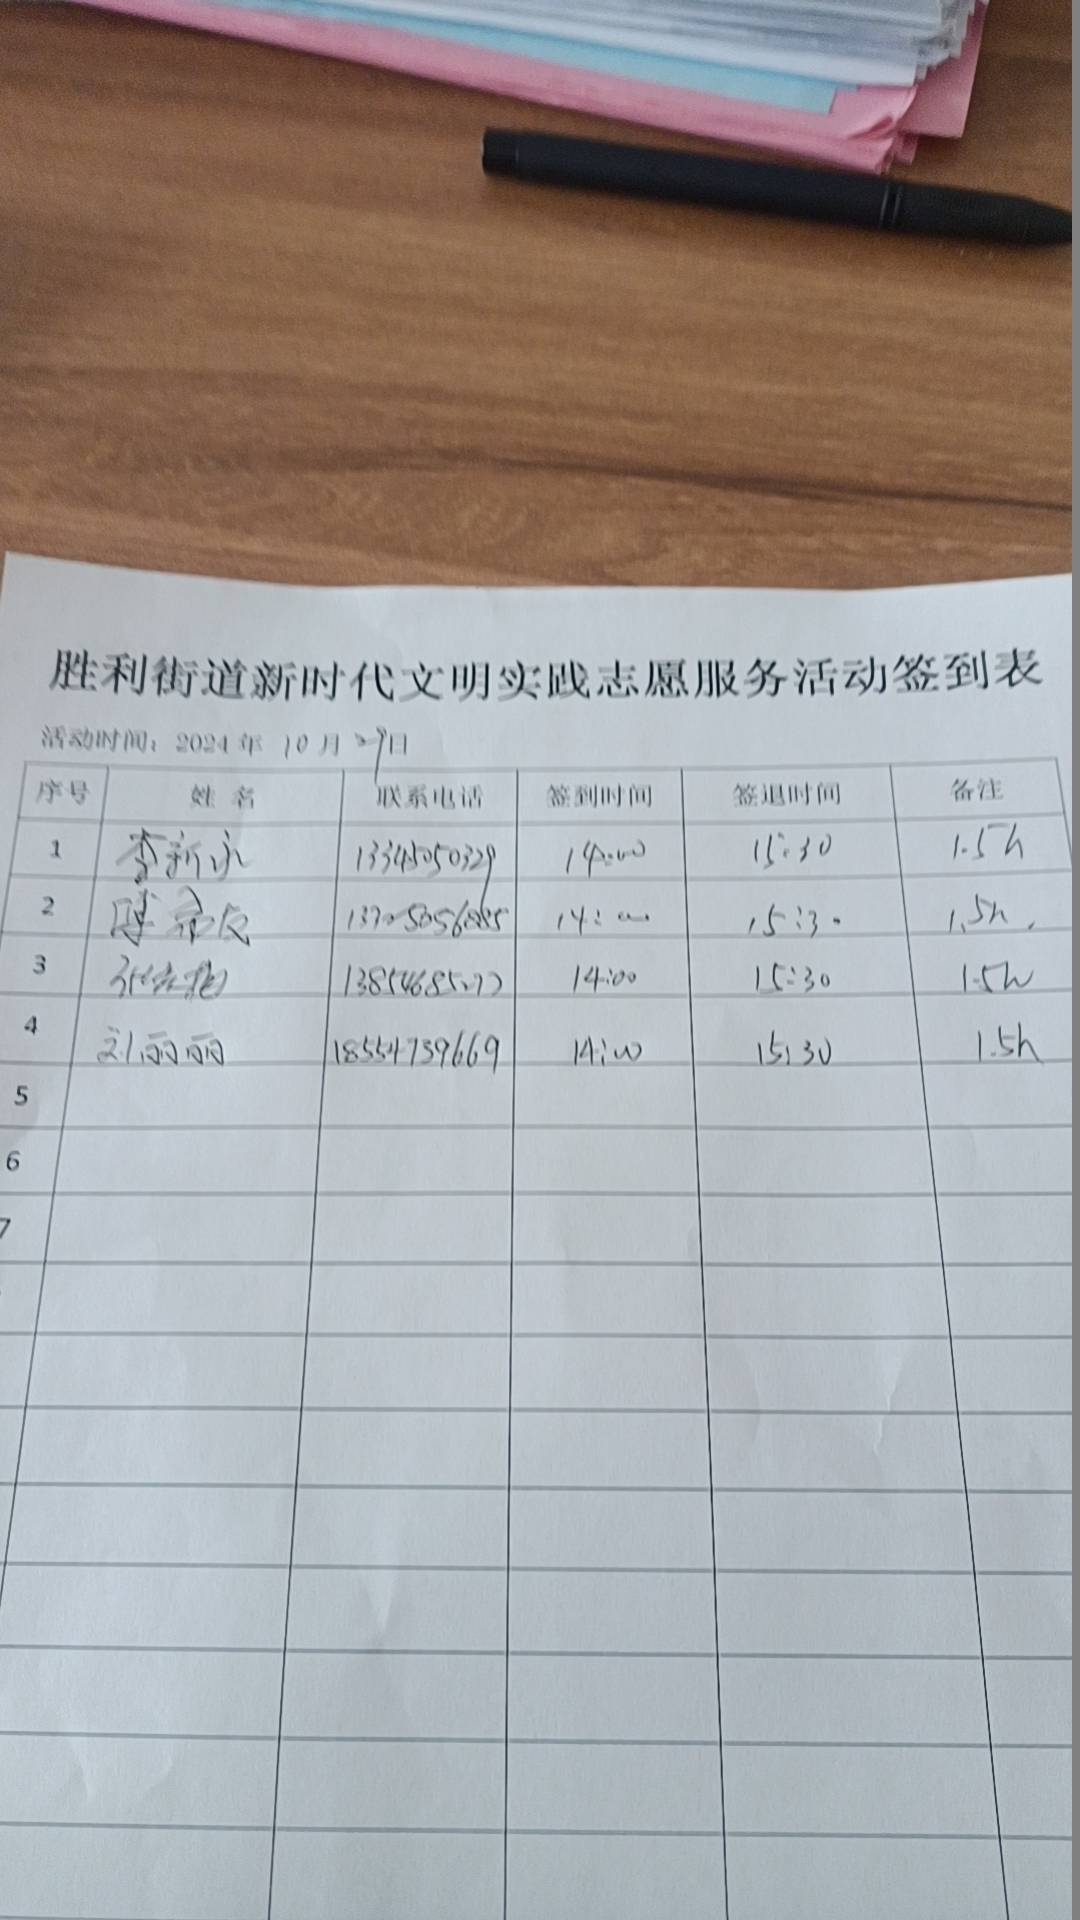 胜利街道新时代文明实践志愿服务活动签到表
活动时间：2024年 10月 29日
序号 姓 名 联系电话 签到时间 签退时间 备注
1 李新永 13345050329 14:00 15:30 1.5h
2 14:00 15:30 1.5h.
3 14:00 15:30 1.5h
4 刘丽丽 18554739669 14:00 15:30 1.5h
5
6
7